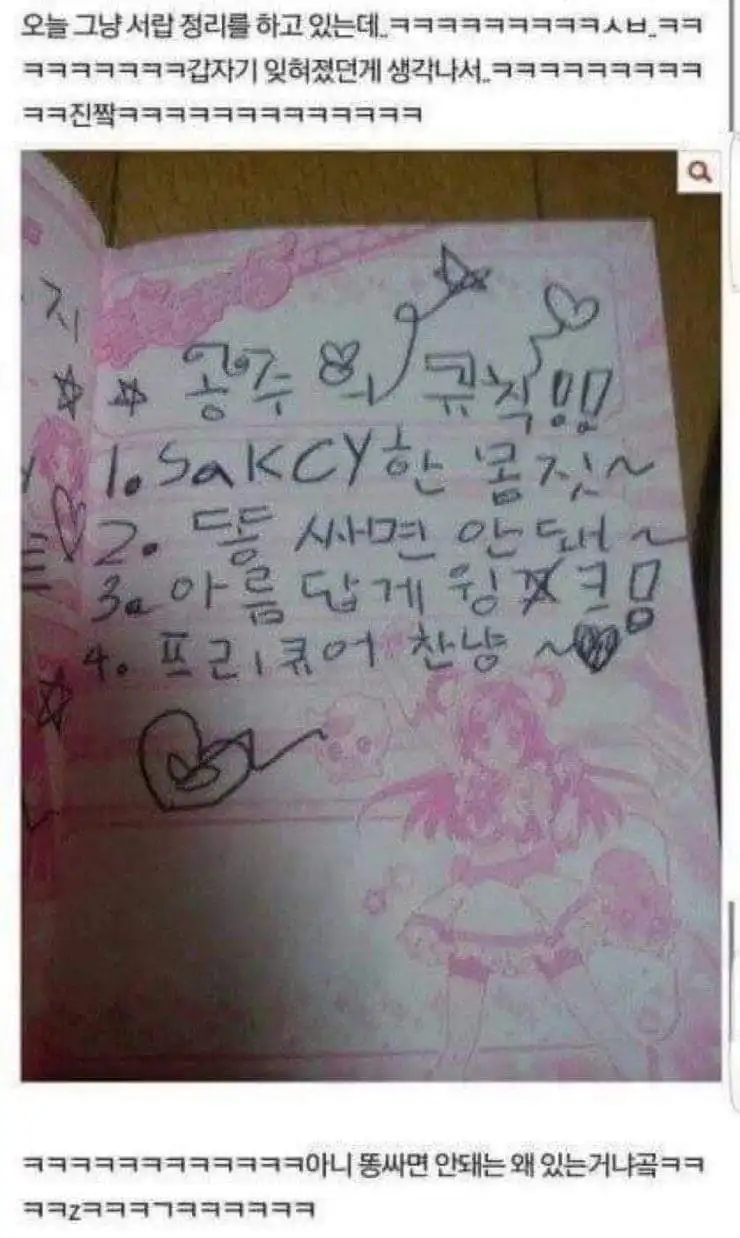 오늘 그냥 서랍 정리를 하고 있는데..ㅋㅋㅋㅋㅋㅋㅋㅋㅋㅋㅅㅂ..ㅋㅋ
ㅋㅋㅋㅋㅋㅋㅋ갑자기 잊혀졌던게 생각나서..ㅋㅋㅋㅋㅋㅋㅋㅋㅋ
ㅋㅋ진짴ㅋㅋㅋㅋㅋㅋㅋㅋㅋㅋㅋㅋㅋ
지
공주의 규칙!!
1. SaKCY한 몸짓~
2. 똥 싸면 안돼~
3. 아름답게 윙크!
4. 프리큐어 찬냥~
ㅋㅋㅋㅋㅋㅋㅋㅋㅋㅋㅋㅋ아니 똥싸면 안돼는 왜 있는거냐곸ㅋㅋ
ㅋㅋzㅋㅋㅋㄱㅋㅋㅋㅋㅋㅋ